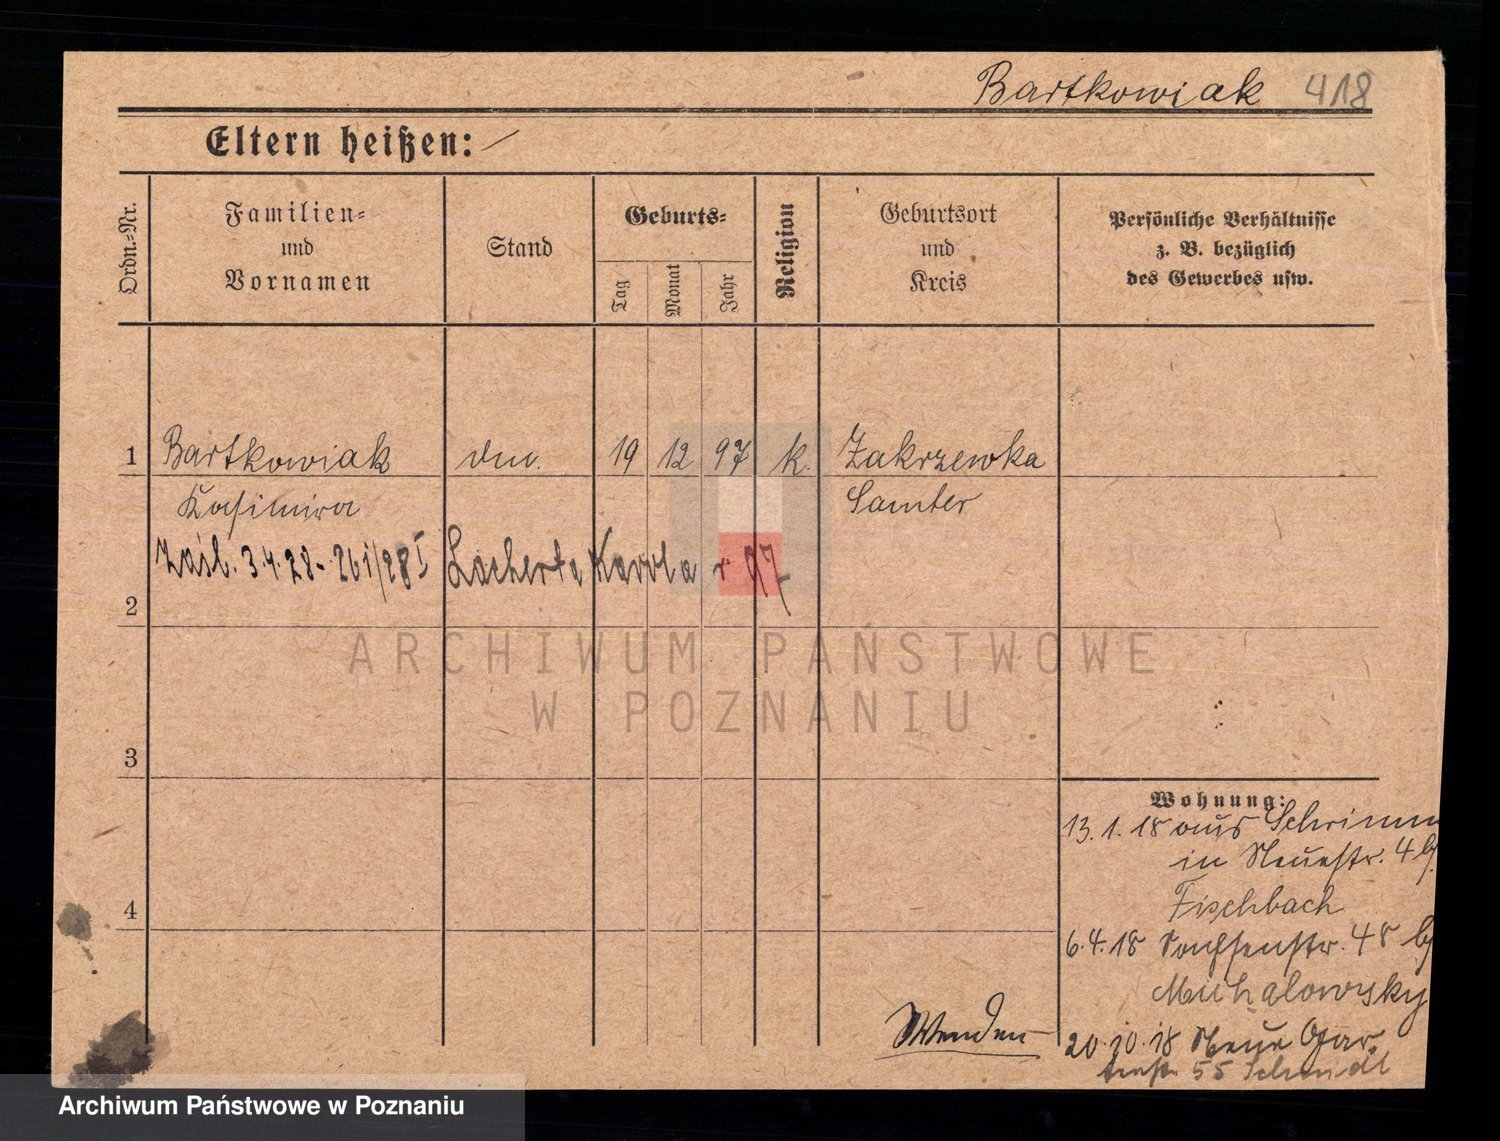 Bartkowiak 418
Eltern heißen:
Ordn.-Nr.
Familien-
und
Vornamen
Stand
Geburts-
Tag
Monat
Jahr
Religion
Geburtsort
und
Kreis
Persönliche Verhältnisse
z. B. bezüglich
des Gewerbes usw.
1 Bartkowiak 19 12 97 k. Zakrzewka
Kasimira Samter
Zaśl. 3.4.28 - 261/28 I Lacherta Karola r 97
2
3
4
Wohnung:
13.1.18 aus Schrimm
in Neuestr. 4 b/
Fischbach
6.4.18 48 b/
Michalowsky
20.10.18 Neue Gar
tenstr 55 Schmidt
Wenden
ARCHIWUM PAŃSTWOWE
W POZNANIU
Archiwum Państwowe w Poznaniu